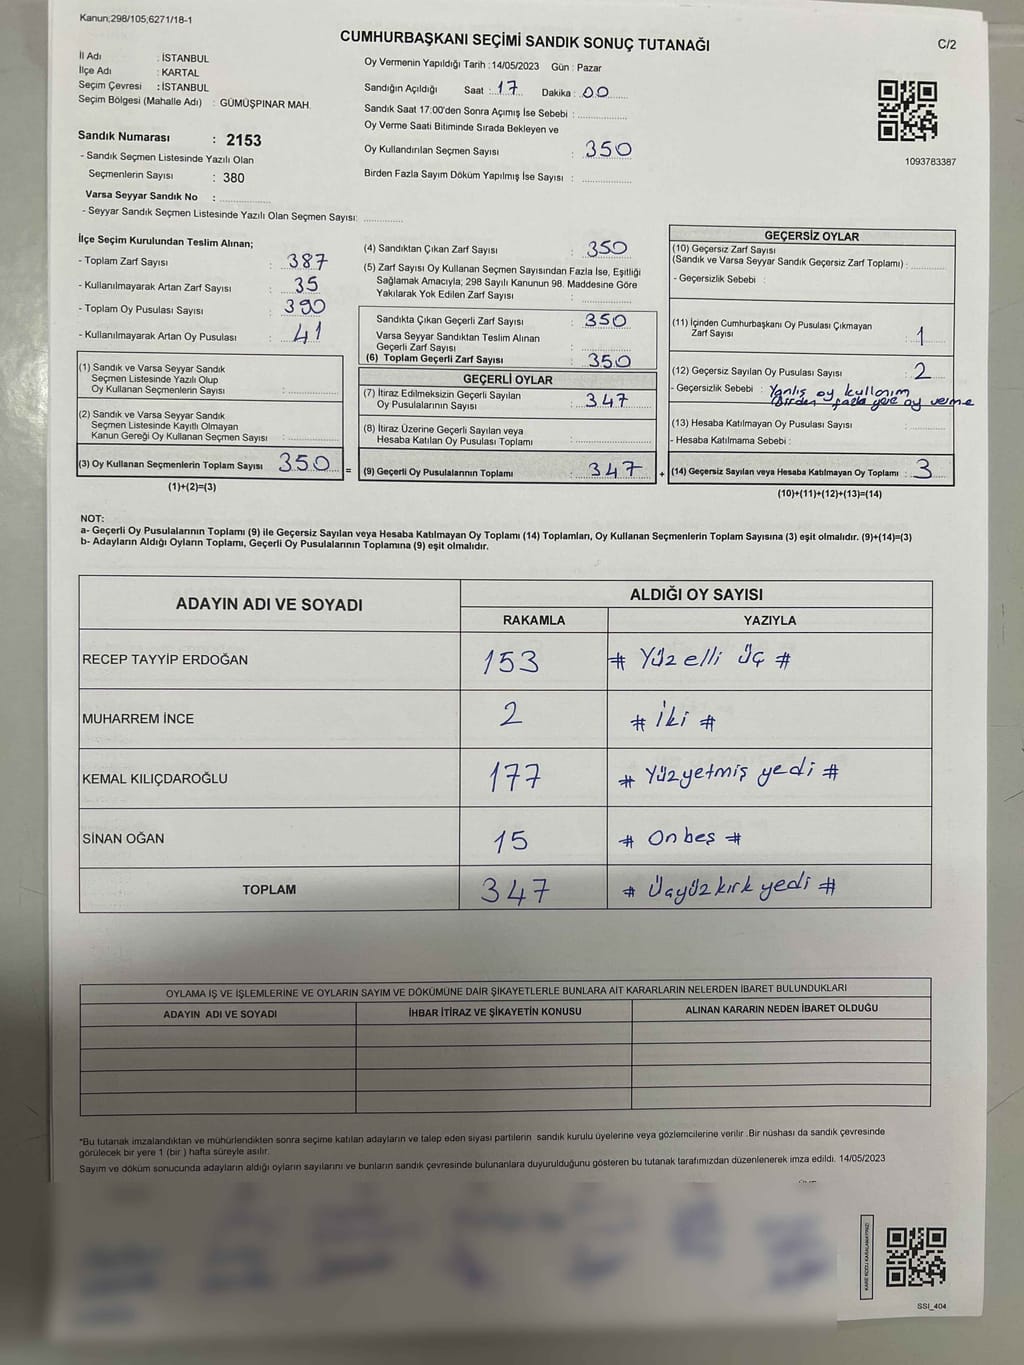 Kanun;298/105,6271/18-1
CUMHURBAŞKANI SEÇİMİ SANDIK SONUÇ TUTANAĞI
C/2
İl Adı : İSTANBUL
İlçe Adı : KARTAL
Seçim Çevresi : İSTANBUL
Seçim Bölgesi (Mahalle Adı) : GÜMÜŞPINAR MAH.
Sandık Numarası : 2153
- Sandık Seçmen Listesinde Yazılı Olan
Seçmenlerin Sayısı : 380
Varsa Seyyar Sandık No :
- Seyyar Sandık Seçmen Listesinde Yazılı Olan Seçmen Sayısı:
Oy Vermenin Yapıldığı Tarih : 14/05/2023 Gün : Pazar
Sandığın Açıldığı Saat : 17 Dakika : 00
Sandık Saat 17:00'den Sonra Açımış İse Sebebi :
Oy Verme Saati Bitiminde Sırada Bekleyen ve
Oy Kullandırılan Seçmen Sayısı : 350
Birden Fazla Sayım Döküm Yapılmış İse Sayısı :
1093783387
İlçe Seçim Kurulundan Teslim Alınan;
- Toplam Zarf Sayısı : 387
- Kullanılmayarak Artan Zarf Sayısı : 35
- Toplam Oy Pusulası Sayısı : 390
- Kullanılmayarak Artan Oy Pusulası : 41
(1) Sandık ve Varsa Seyyar Sandık
Seçmen Listesinde Yazılı Olup
Oy Kullanan Seçmenlerin Sayısı :
(2) Sandık ve Varsa Seyyar Sandık
Seçmen Listesinde Kayıtlı Olmayan
Kanun Gereği Oy Kullanan Seçmen Sayısı :
(3) Oy Kullanan Seçmenlerin Toplam Sayısı 350 =
(1)+(2)=(3)
(4) Sandıktan Çıkan Zarf Sayısı : 350
(5) Zarf Sayısı Oy Kullanan Seçmen Sayısından Fazla İse, Eşitliği
Sağlamak Amacıyla; 298 Sayılı Kanunun 98. Maddesine Göre
Yakılarak Yok Edilen Zarf Sayısı :
Sandıkta Çıkan Geçerli Zarf Sayısı : 350
Varsa Seyyar Sandıktan Teslim Alınan
Geçerli Zarf Sayısı :
(6) Toplam Geçerli Zarf Sayısı : 350
GEÇERLİ OYLAR
(7) İtiraz Edilmeksizin Geçerli Sayılan
Oy Pusulalarının Sayısı : 347
(8) İtiraz Üzerine Geçerli Sayılan veya
Hesaba Katılan Oy Pusulası Toplamı :
(9) Geçerli Oy Pusulalarının Toplamı : 347 +
GEÇERSİZ OYLAR
(10) Geçersiz Zarf Sayısı
(Sandık ve Varsa Seyyar Sandık Geçersiz Zarf Toplamı) :
- Geçersizlik Sebebi :
(11) İçinden Cumhurbaşkanı Oy Pusulası Çıkmayan
Zarf Sayısı : 1
(12) Geçersiz Sayılan Oy Pusulası Sayısı : 2
- Geçersizlik Sebebi : Yanlış oy kullanım
Birden fazla yere oy verme
(13) Hesaba Katılmayan Oy Pusulası Sayısı :
- Hesaba Katılmama Sebebi :
(14) Geçersiz Sayılan veya Hesaba Katılmayan Oy Toplamı : 3
(10)+(11)+(12)+(13)=(14)
NOT:
a- Geçerli Oy Pusulalarının Toplamı (9) ile Geçersiz Sayılan veya Hesaba Katılmayan Oy Toplamı (14) Toplamları, Oy Kullanan Seçmenlerin Toplam Sayısına (3) eşit olmalıdır. (9)+(14)=(3)
b- Adayların Aldığı Oyların Toplamı, Geçerli Oy Pusulalarının Toplamına (9) eşit olmalıdır.
ADAYIN ADI VE SOYADI ALDIĞI OY SAYISI
RAKAMLA YAZIYLA
RECEP TAYYİP ERDOĞAN 153 # Yüz elli üç #
MUHARREM İNCE 2 # İki #
KEMAL KILIÇDAROĞLU 177 # Yüzyetmiş yedi #
SİNAN OĞAN 15 # On beş #
TOPLAM 347 # Üçyüz kırk yedi #
OYLAMA İŞ VE İŞLEMLERİNE VE OYLARIN SAYIM VE DÖKÜMÜNE DAİR ŞİKAYETLERLE BUNLARA AİT KARARLARIN NELERDEN İBARET BULUNDUKLARI
ADAYIN ADI VE SOYADI İHBAR İTİRAZ VE ŞİKAYETİN KONUSU ALINAN KARARIN NEDEN İBARET OLDUĞU
*Bu tutanak imzalandıktan ve mühürlendikten sonra seçime katılan adayların ve talep eden siyasi partilerin sandık kurulu üyelerine veya gözlemcilerine verilir .Bir nüshası da sandık çevresinde
görülecek bir yere 1 (bir ) hafta süreyle asılır.
Sayım ve döküm sonucunda adayların aldığı oyların sayılarını ve bunların sandık çevresinde bulunanlara duyurulduğunu gösteren bu tutanak tarafımızdan düzenlenerek imza edildi. 14/05/2023
KARE KODU KARALAMAYINIZ!
SSI_404